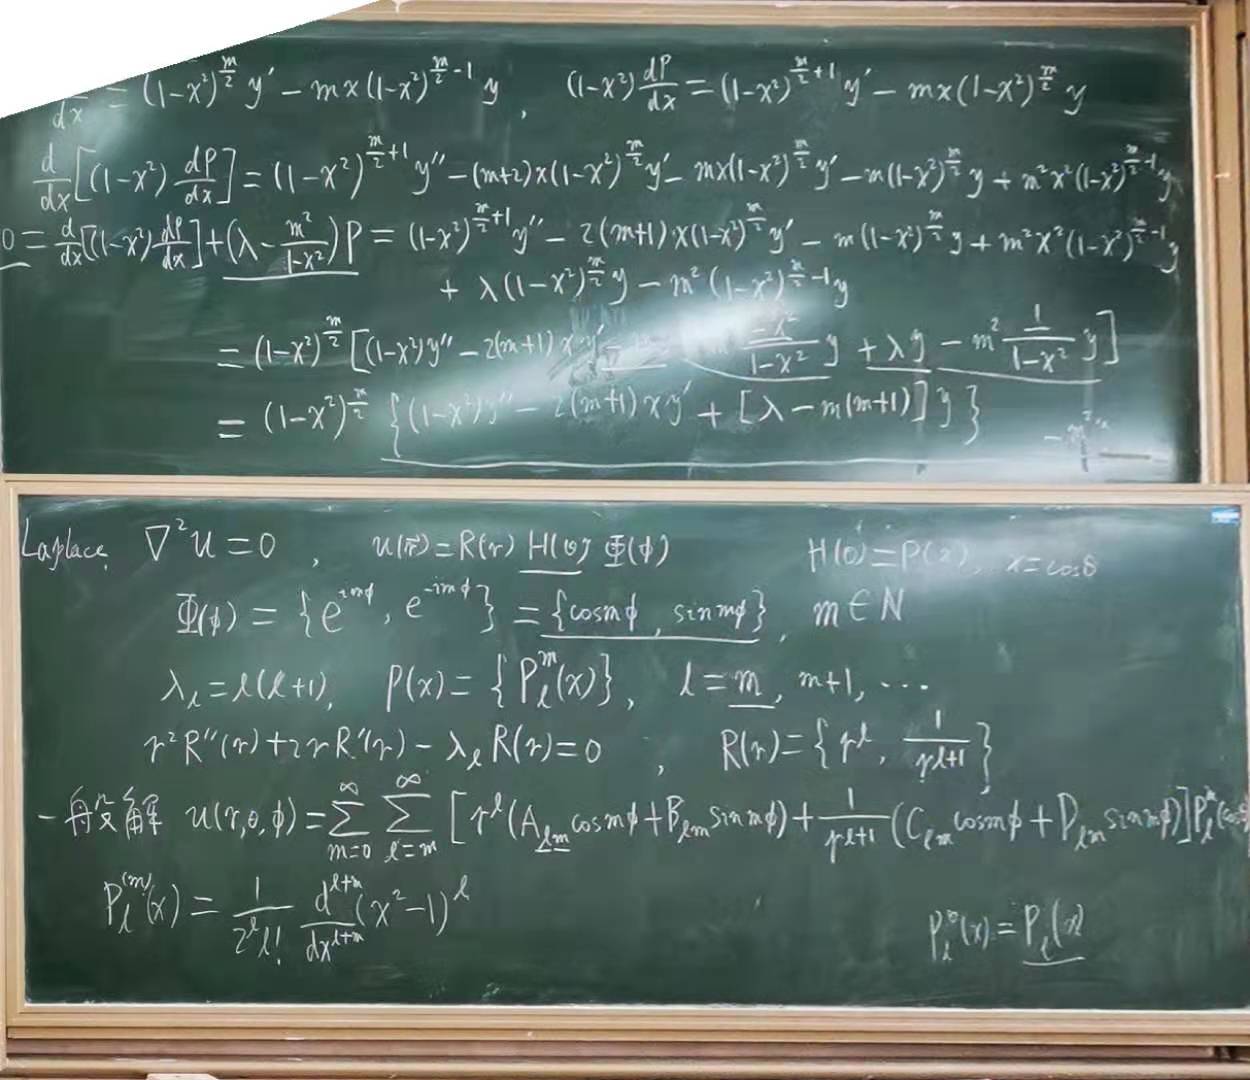 d/dx = (1-x²)^{m/2} y' - mx(1-x²)^{m/2 -1} y , (1-x²) dP/dx = (1-x²)^{m/2 +1} y' - mx(1-x²)^{m/2} y
d/dx [(1-x²) dP/dx] = (1-x²)^{m/2 +1} y'' - (m+2)x(1-x²)^{m/2} y' - mx(1-x²)^{m/2} y' - m(1-x²)^{m/2} y + m²x²(1-x²)^{m/2 -1} y
0 = d/dx [(1-x²) dP/dx] + (λ - m²/(1-x²)) P = (1-x²)^{m/2 +1} y'' - 2(m+1)x(1-x²)^{m/2} y' - m(1-x²)^{m/2} y + m²x²(1-x²)^{m/2 -1} y
+ λ(1-x²)^{m/2} y - m²(1-x²)^{m/2 -1} y
= (1-x²)^{m/2} [(1-x²)y'' - 2(m+1)xy' -x²/(1-x²) y + λy - m² 1/(1-x²) y]
= (1-x²)^{m/2} {(1-x²)y'' - 2(m+1)xy' + [λ - m(m+1)] y}
Laplace, ∇²u = 0 , u(r⃗) = R(r) H(θ) Φ(ϕ) H(θ) = P(x), x = cosθ
Φ(ϕ) = {e^{imϕ}, e^{-imϕ}} = {cosmϕ, sinmϕ}, m ∈ N
λ_l = l(l+1), P(x) = {P_l^m(x)}, l = m, m+1, ⋯
r²R''(r) + 2rR'(r) - λ_l R(r) = 0 , R(r) = {r^l, 1/r^{l+1}}
一般解 u(r,θ,ϕ) = ∑_{m=0}^{∞} ∑_{l=m}^{∞} [r^l (A_{lm} cosmϕ + B_{lm} sinmϕ) + 1/r^{l+1} (C_{lm} cosmϕ + D_{lm} sinmϕ)] P_l^m(cosθ
P_l^{(m)}(x) = 1/(2^l l!) d^{l+m}/dx^{l+m} (x²-1)^l
P_l^0(x) = P_l(x)